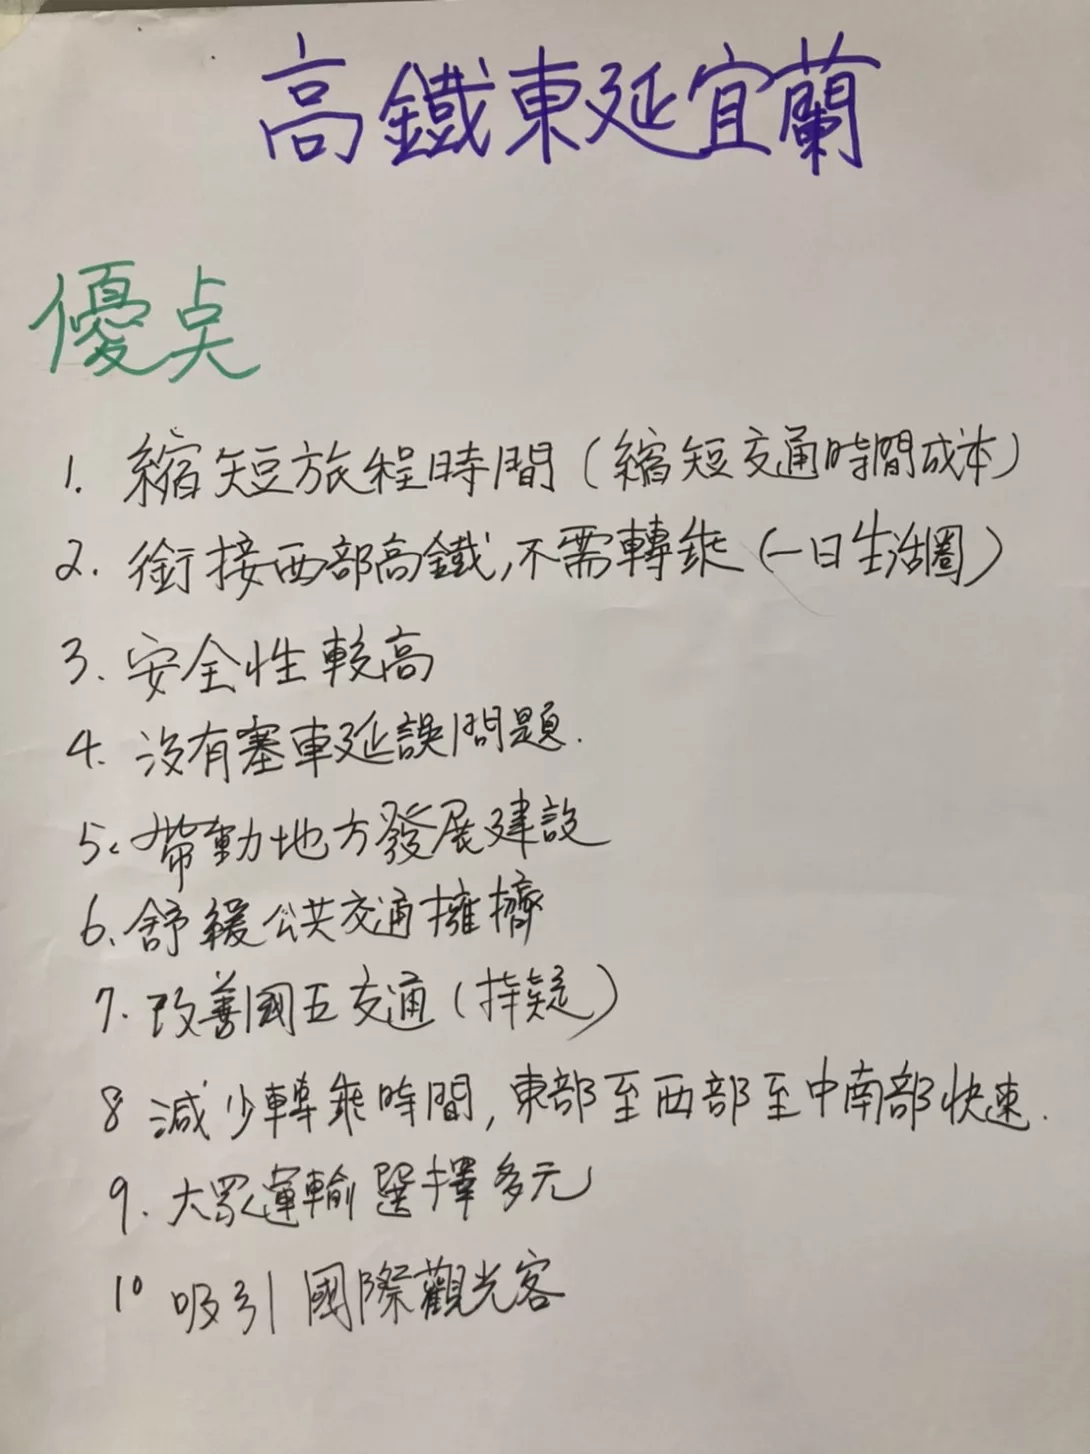 高鐵東延宜蘭
優点
1. 縮短旅程時間(縮短交通時間成本)
2. 銜接西部高鐵,不需轉乘(一日生活圈)
3. 安全性較高
4. 沒有塞車延誤問題.
5. 帶動地方發展建設
6. 舒緩公共交通擁擠
7. 改善國五交通(持疑)
8 減少轉乘時間,東部至西部至中南部快速.
9. 大眾運輸選擇多元
10 吸引國際觀光客